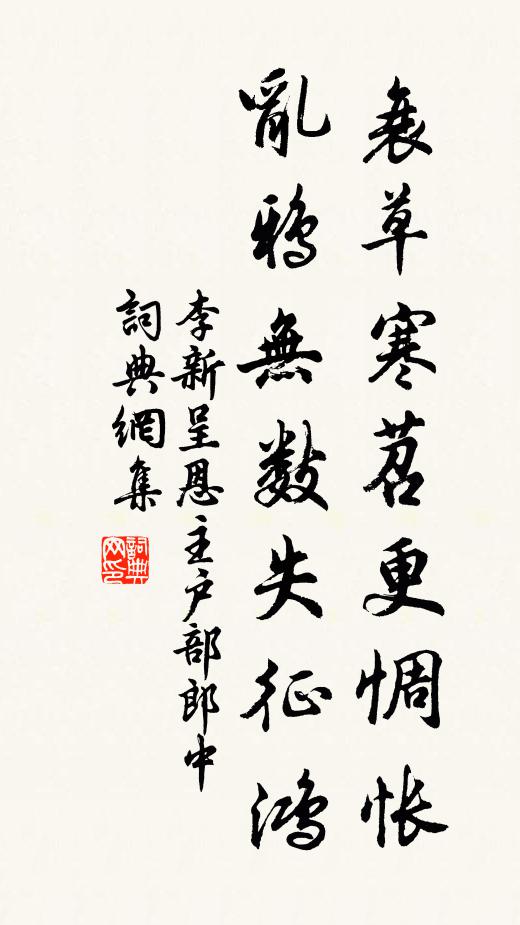 衰草寒苕更惆怅
亂鴉無数失征鴻
李新呈恩主户部郎中
詞典網集
詞典网印